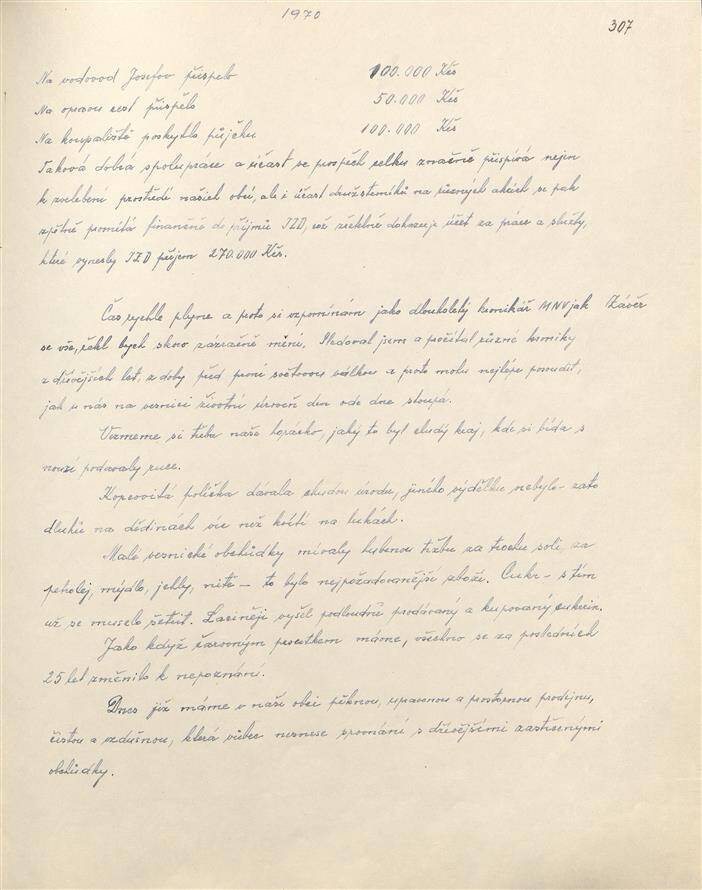 1970
307
Na vodovod Josefov přispělo 100.000 Kčs
Na opravu cest přispělo 50.000 Kčs
Na koupaliště poskytlo půjčku 100.000 Kčs
Taková dobrá spolupráce a účast ve prospěch celku značně přispívá nejen
k zvelebení prostředí našich obcí, ale i účast družstevníků na různých akcích se pak
zpětně promítá finančně do příjmů JZD, což zřetelně dokazuje účet za práce a služby,
které vynesly JZD příjem 270.000 Kčs.
Čas rychle plyne a proto si vzpomínám jako dlouholetý kronikář MNV jak
Závěr
se vše, řekl bych skoro zázračně mění. Sledoval jsem a pročítal různé kroniky
z dřívějších let, z doby před první světovou válkou a proto mohu nejlépe posoudit,
jak u nás na vesnici životní úroveň den ode dne stoupá.
Vezmeme si třeba naše Horácko, jaký to byl chudý kraj, kde si bída s
nouzí podávaly ruce.
Kopcovitá políčka dávala chudou úrodu, jiného výdělku nebylo - zato
dluhů na dědinách víc než kvítí na lukách.
Malé vesnické obchůdky mívaly hubenou tržbu za trochu soli, za
petrolej, mýdlo, jehly, nitě - to bylo nejpožadovanější zboží. Cukr - s tím
už se muselo šetřit. Laciněji vyšel podloudně prodávaný a kupovaný cukerin.
Jako když čarovným proutkem mávne, všechno se za posledních
25 let změnilo k nepoznání.
Dnes již máme v naší obci pěknou, upravenou a prostornou prodejnu,
čistou a vzdušnou, která vůbec nesnese srovnání s dřívějšími zastrčenými
obchůdky.